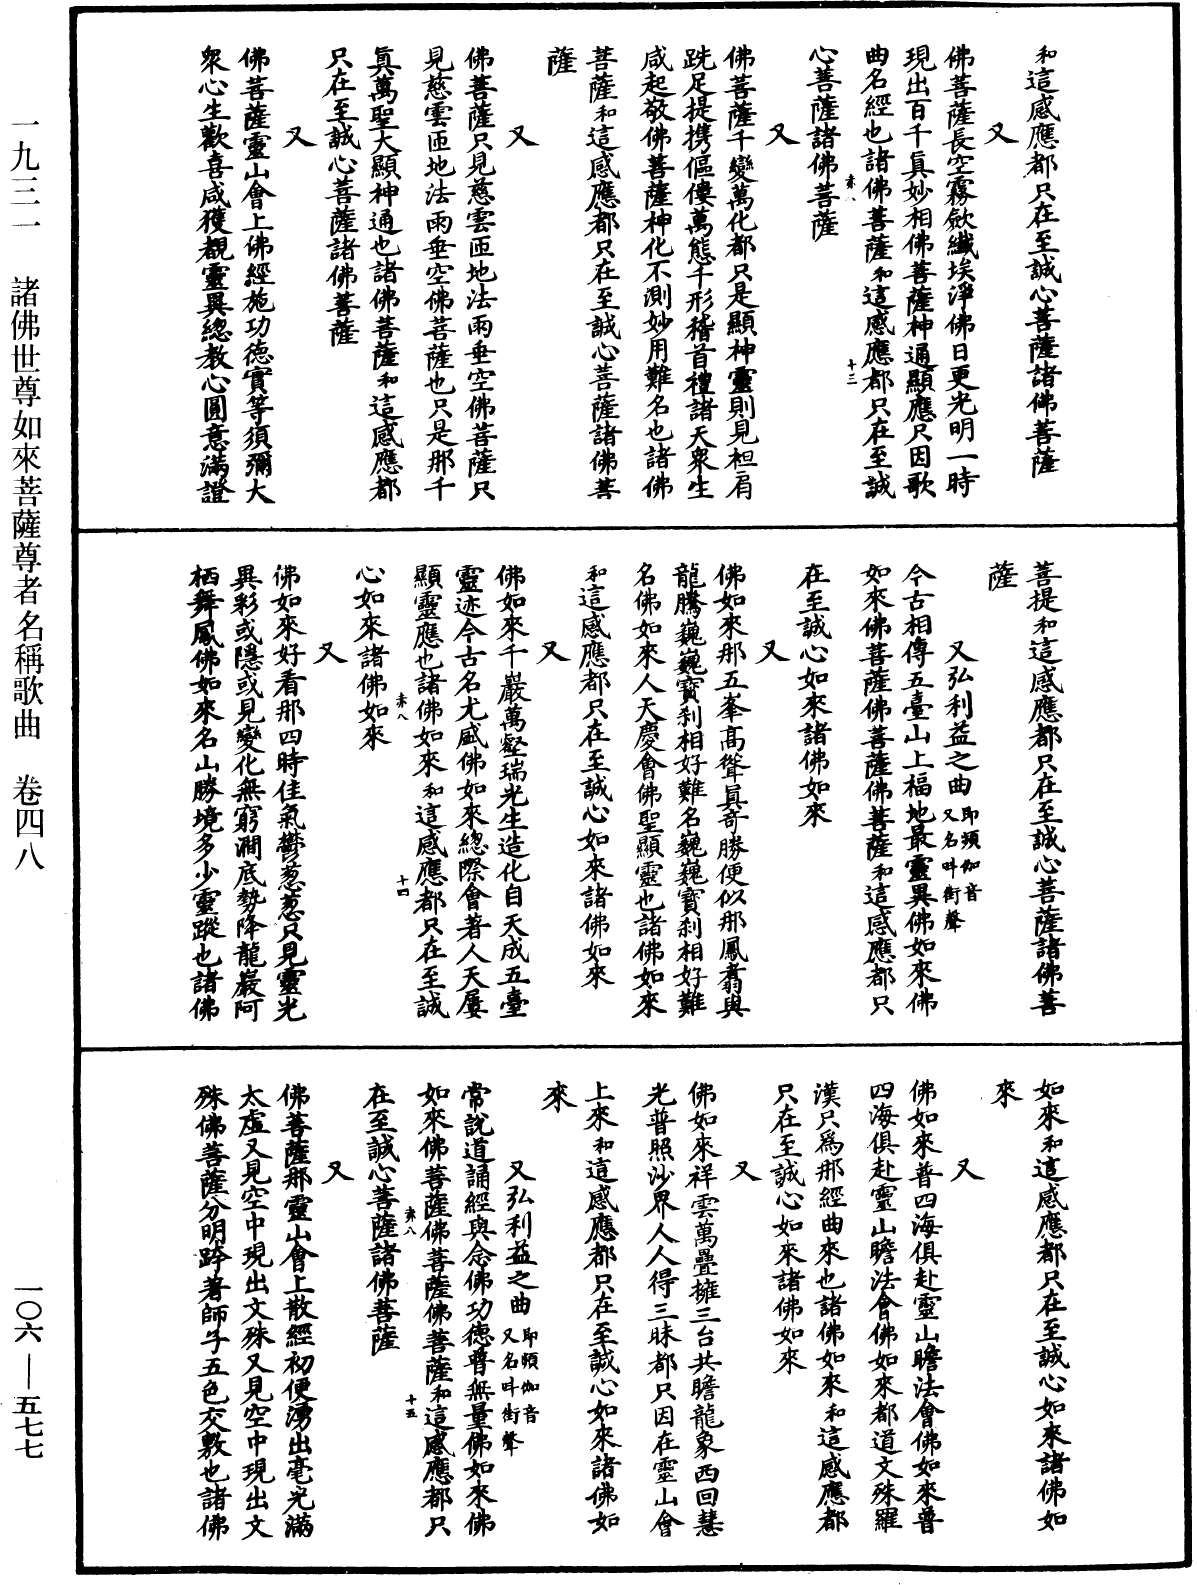 一九三一　諸佛世尊如來菩薩尊者名稱歌曲　卷四八
一〇六—五七七
和這感應都只在至誠心菩薩諸佛菩薩
又
佛菩薩長空霧歛纖埃淨佛日更光明一時
現出百千真妙相佛菩薩神通顯應只因歌
曲名經也諸佛菩薩和這感應都只在至誠
心菩薩諸佛菩薩
十三
又
佛菩薩千變萬化都只是顯神靈則見袒肩
跣足提携傴僂萬態千形稽首禮諸天衆生
咸起敬佛菩薩神化不測妙用難名也諸佛
菩薩和這感應都只在至誠心菩薩諸佛菩
薩
又
佛菩薩只見慈雲匝地法雨垂空佛菩薩只
見慈雲匝地法雨垂空佛菩薩也只是那千
真萬聖大顯神通也諸佛菩薩和這感應都
只在至誠心菩薩諸佛菩薩
又
佛菩薩靈山會上佛經施功德實等須彌大
衆心生歡喜咸獲覩靈異總教心圓意滿證
菩提和這感應都只在至誠心菩薩諸佛菩
薩
又弘利益之曲 即頻伽音
又名叫街聲
今古相傳五臺山上福地最靈異佛如來佛
如來佛菩薩佛菩薩佛菩薩和這感應都只
在至誠心如來諸佛如來
又
佛如來那五峯高聳真奇勝便似那鳳翥與
龍騰巍巍寶刹相好難名巍巍寶刹相好難
名佛如來人天慶會佛聖顯靈也諸佛如來
和這感應都只在至誠心如來諸佛如來
又
佛如來千巖萬壑瑞光生造化自天成五臺
靈迹今古名尤盛佛如來總際會著人天屢
顯靈應也諸佛如來和這感應都只在至誠
心如來諸佛如來
十四
又
佛如來好看那四時佳氣鬱葱葱只見靈光
異彩或隱或見變化無窮澗底勢降龍巖阿
栖舞鳳佛如來名山勝境多少靈蹤也諸佛
如來和這感應都只在至誠心如來諸佛如
來
又
佛如來普四海俱赴靈山瞻法會佛如來普
四海俱赴靈山瞻法會佛如來都道文殊羅
漢只爲那經曲來也諸佛如來和這感應都
只在至誠心如來諸佛如來
又
佛如來祥雲萬疊擁三台共瞻龍象西回慧
光普照沙界人人得三昧都只因在靈山會
上來和這感應都只在至誠心如來諸佛如
來
又弘利益之曲 即頻伽音
又名叫街聲
常說道誦經與念佛功德普無量佛如來佛
如來佛菩薩佛菩薩佛菩薩和這感應都只
在至誠心菩薩諸佛菩薩
十五
又
佛菩薩那靈山會上散經初便湧出毫光滿
太虛又見空中現出文殊又見空中現出文
殊佛菩薩分明跨著師子五色交敷也諸佛